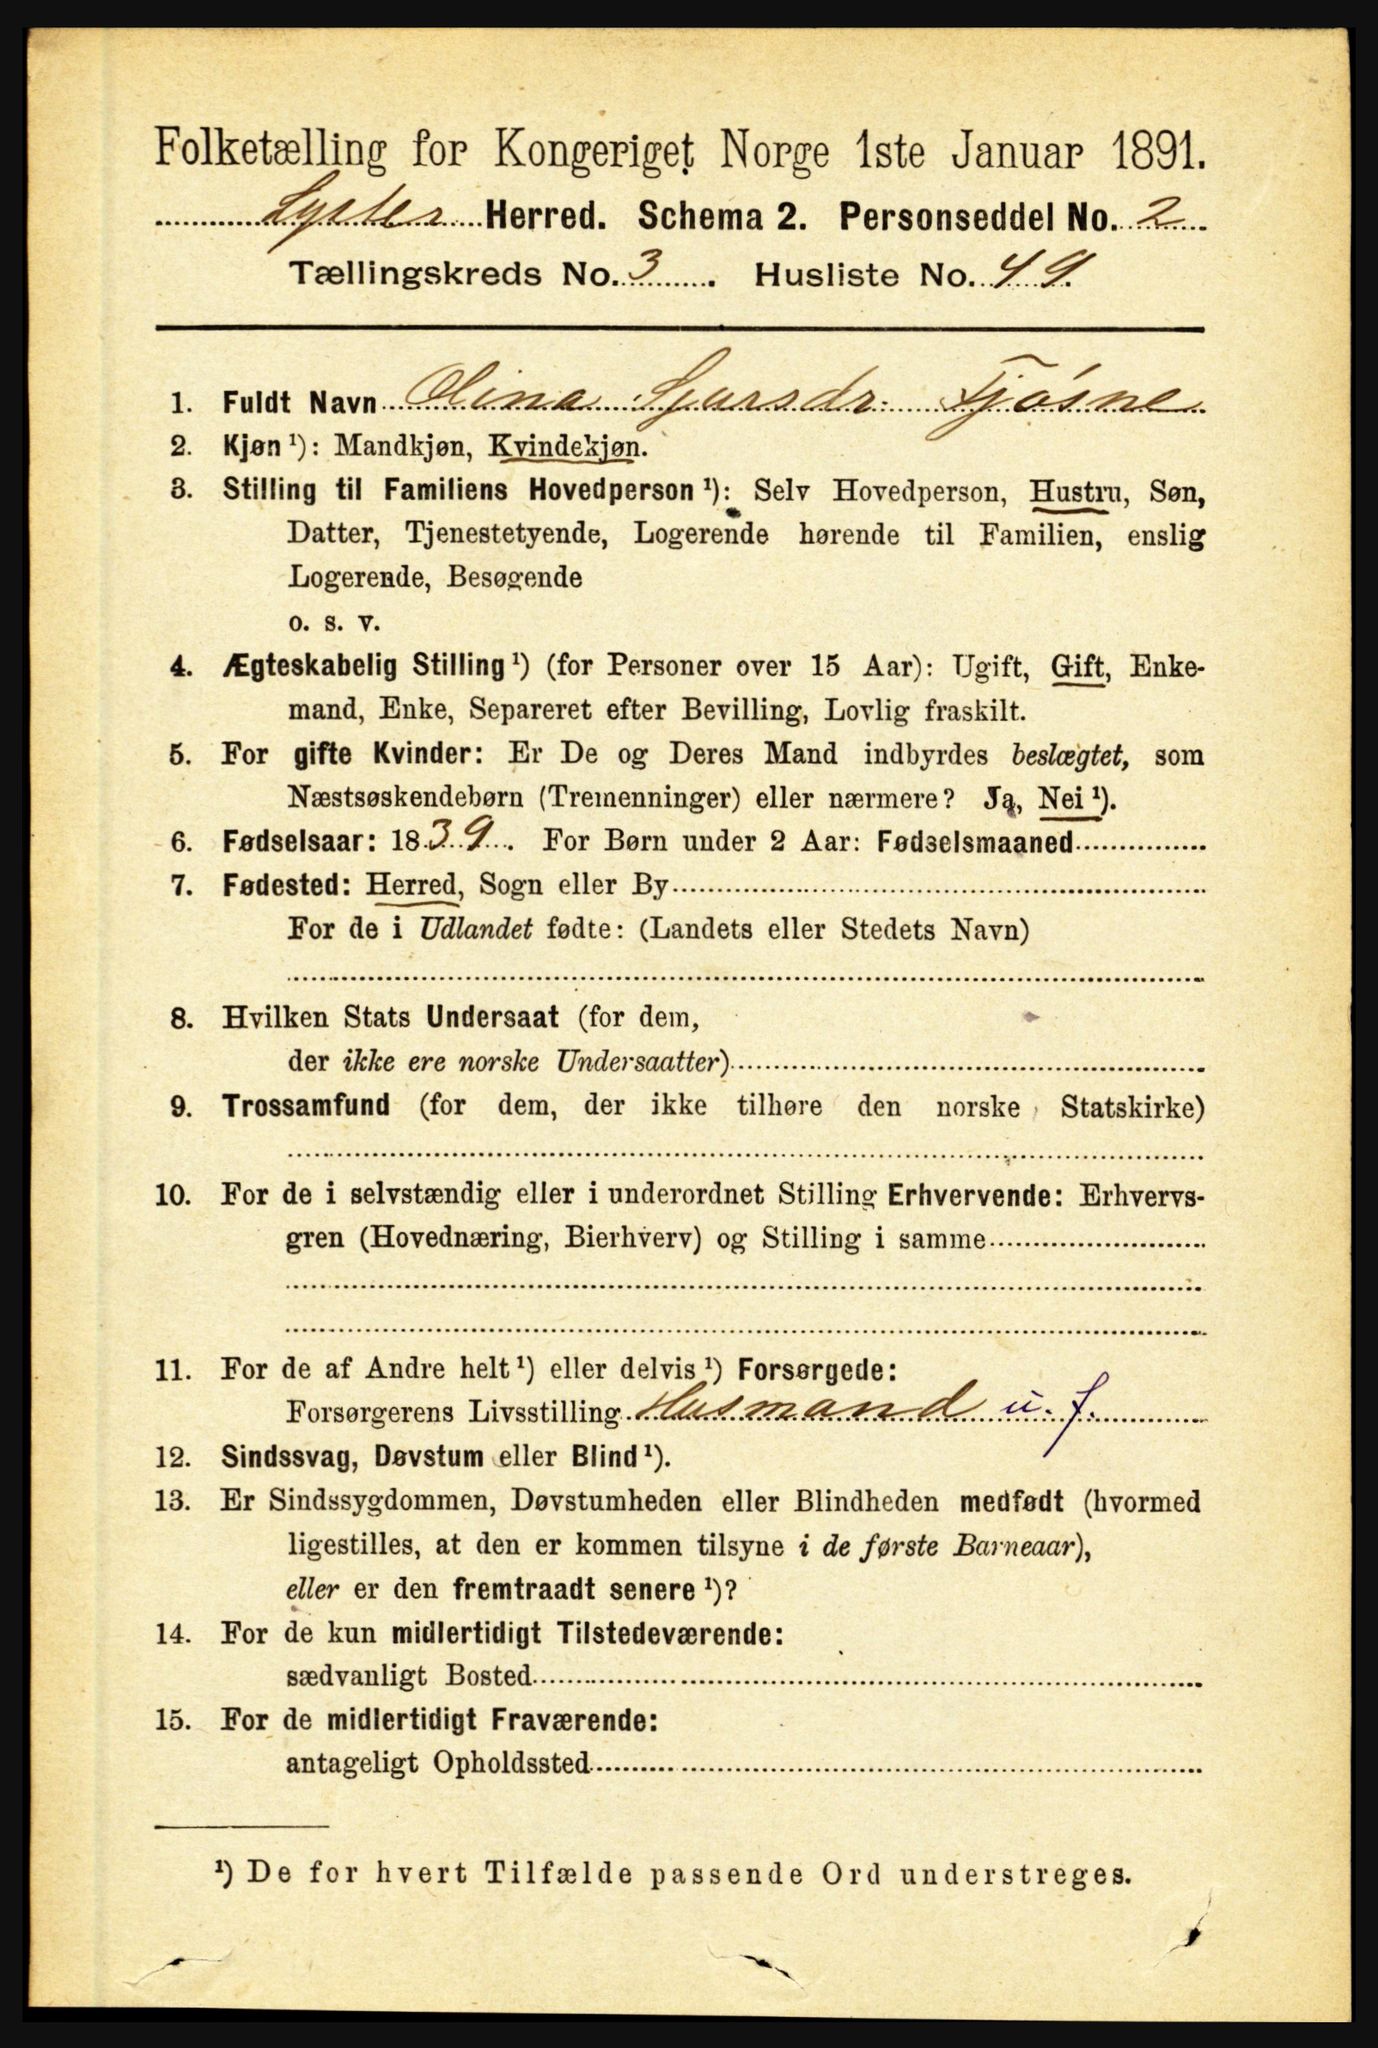 Folketælling for Kongeriget Norge 1ste Januar 1891.
Lyster Herred. Schema 2. Personseddel No. 2
Tællingskreds No. 3. Husliste No. 49.
1. Fuldt Navn Olina Sjursdr. Fjøsne
2. Kjøn ¹): Mandkjøn, Kvindekjøn.
3. Stilling til Familiens Hovedperson ¹): Selv Hovedperson, Hustru, Søn,
Datter, Tjenestetyende, Logerende hørende til Familien, enslig
Logerende, Besøgende
o. s. v.
4. Ægteskabelig Stilling ¹) (for Personer over 15 Aar): Ugift, Gift, Enke-
mand, Enke, Separeret efter Bevilling, Lovlig fraskilt.
5. For gifte Kvinder: Er De og Deres Mand indbyrdes beslægtet, som
Næstsøskendebørn (Tremenninger) eller nærmere? Ja, Nei ¹).
6. Fødselsaar: 1839. For Børn under 2 Aar: Fødselsmaaned
7. Fødested: Herred, Sogn eller By
For de i Udlandet fødte: (Landets eller Stedets Navn)
8. Hvilken Stats Undersaat (for dem,
der ikke ere norske Undersaatter)
9. Trossamfund (for dem, der ikke tilhøre den norske Statskirke)
10. For de i selvstændig eller i underordnet Stilling Erhvervende: Erhvervs-
gren (Hovednæring, Bierhverv) og Stilling i samme
11. For de af Andre helt ¹) eller delvis ¹) Forsørgede:
Forsørgerens Livsstilling Husmand u. f.
12. Sindssvag, Døvstum eller Blind ¹).
13. Er Sindssygdommen, Døvstumheden eller Blindheden medfødt (hvormed
ligestilles, at den er kommen tilsyne i de første Barneaar),
eller er den fremtraadt senere ¹)?
14. For de kun midlertidigt Tilstedeværende:
sædvanligt Bosted
15. For de midlertidigt Fraværende:
antageligt Opholdssted
¹) De for hvert Tilfælde passende Ord understreges.